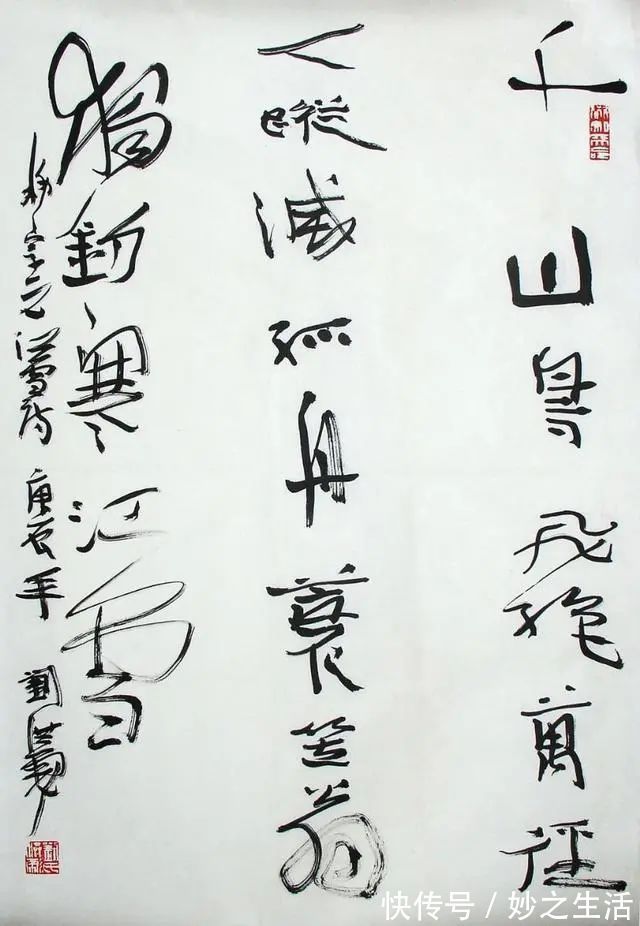 千山鳥飛絕萬徑
人蹤滅孤舟蓑笠翁
獨釣寒江雪
柳宗元江雪詩 庚辰年
快传号／妙之生活